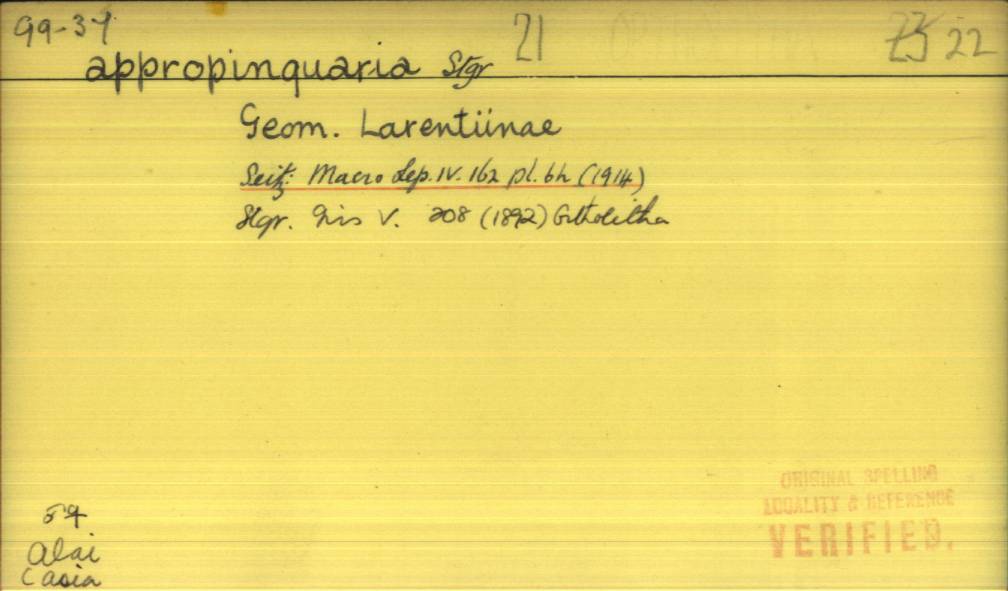 99-37 21 22
appropinquaria Stgr
Geom. Larentiinae
Seitz: Macro Lep. IV. 162 pl. 6h (1914)
Stgr. Iris V. 208 (1892)
ORIGINAL SPELLING
LOCALITY & REFERENCE
VERIFIED.
Alai
C Asia